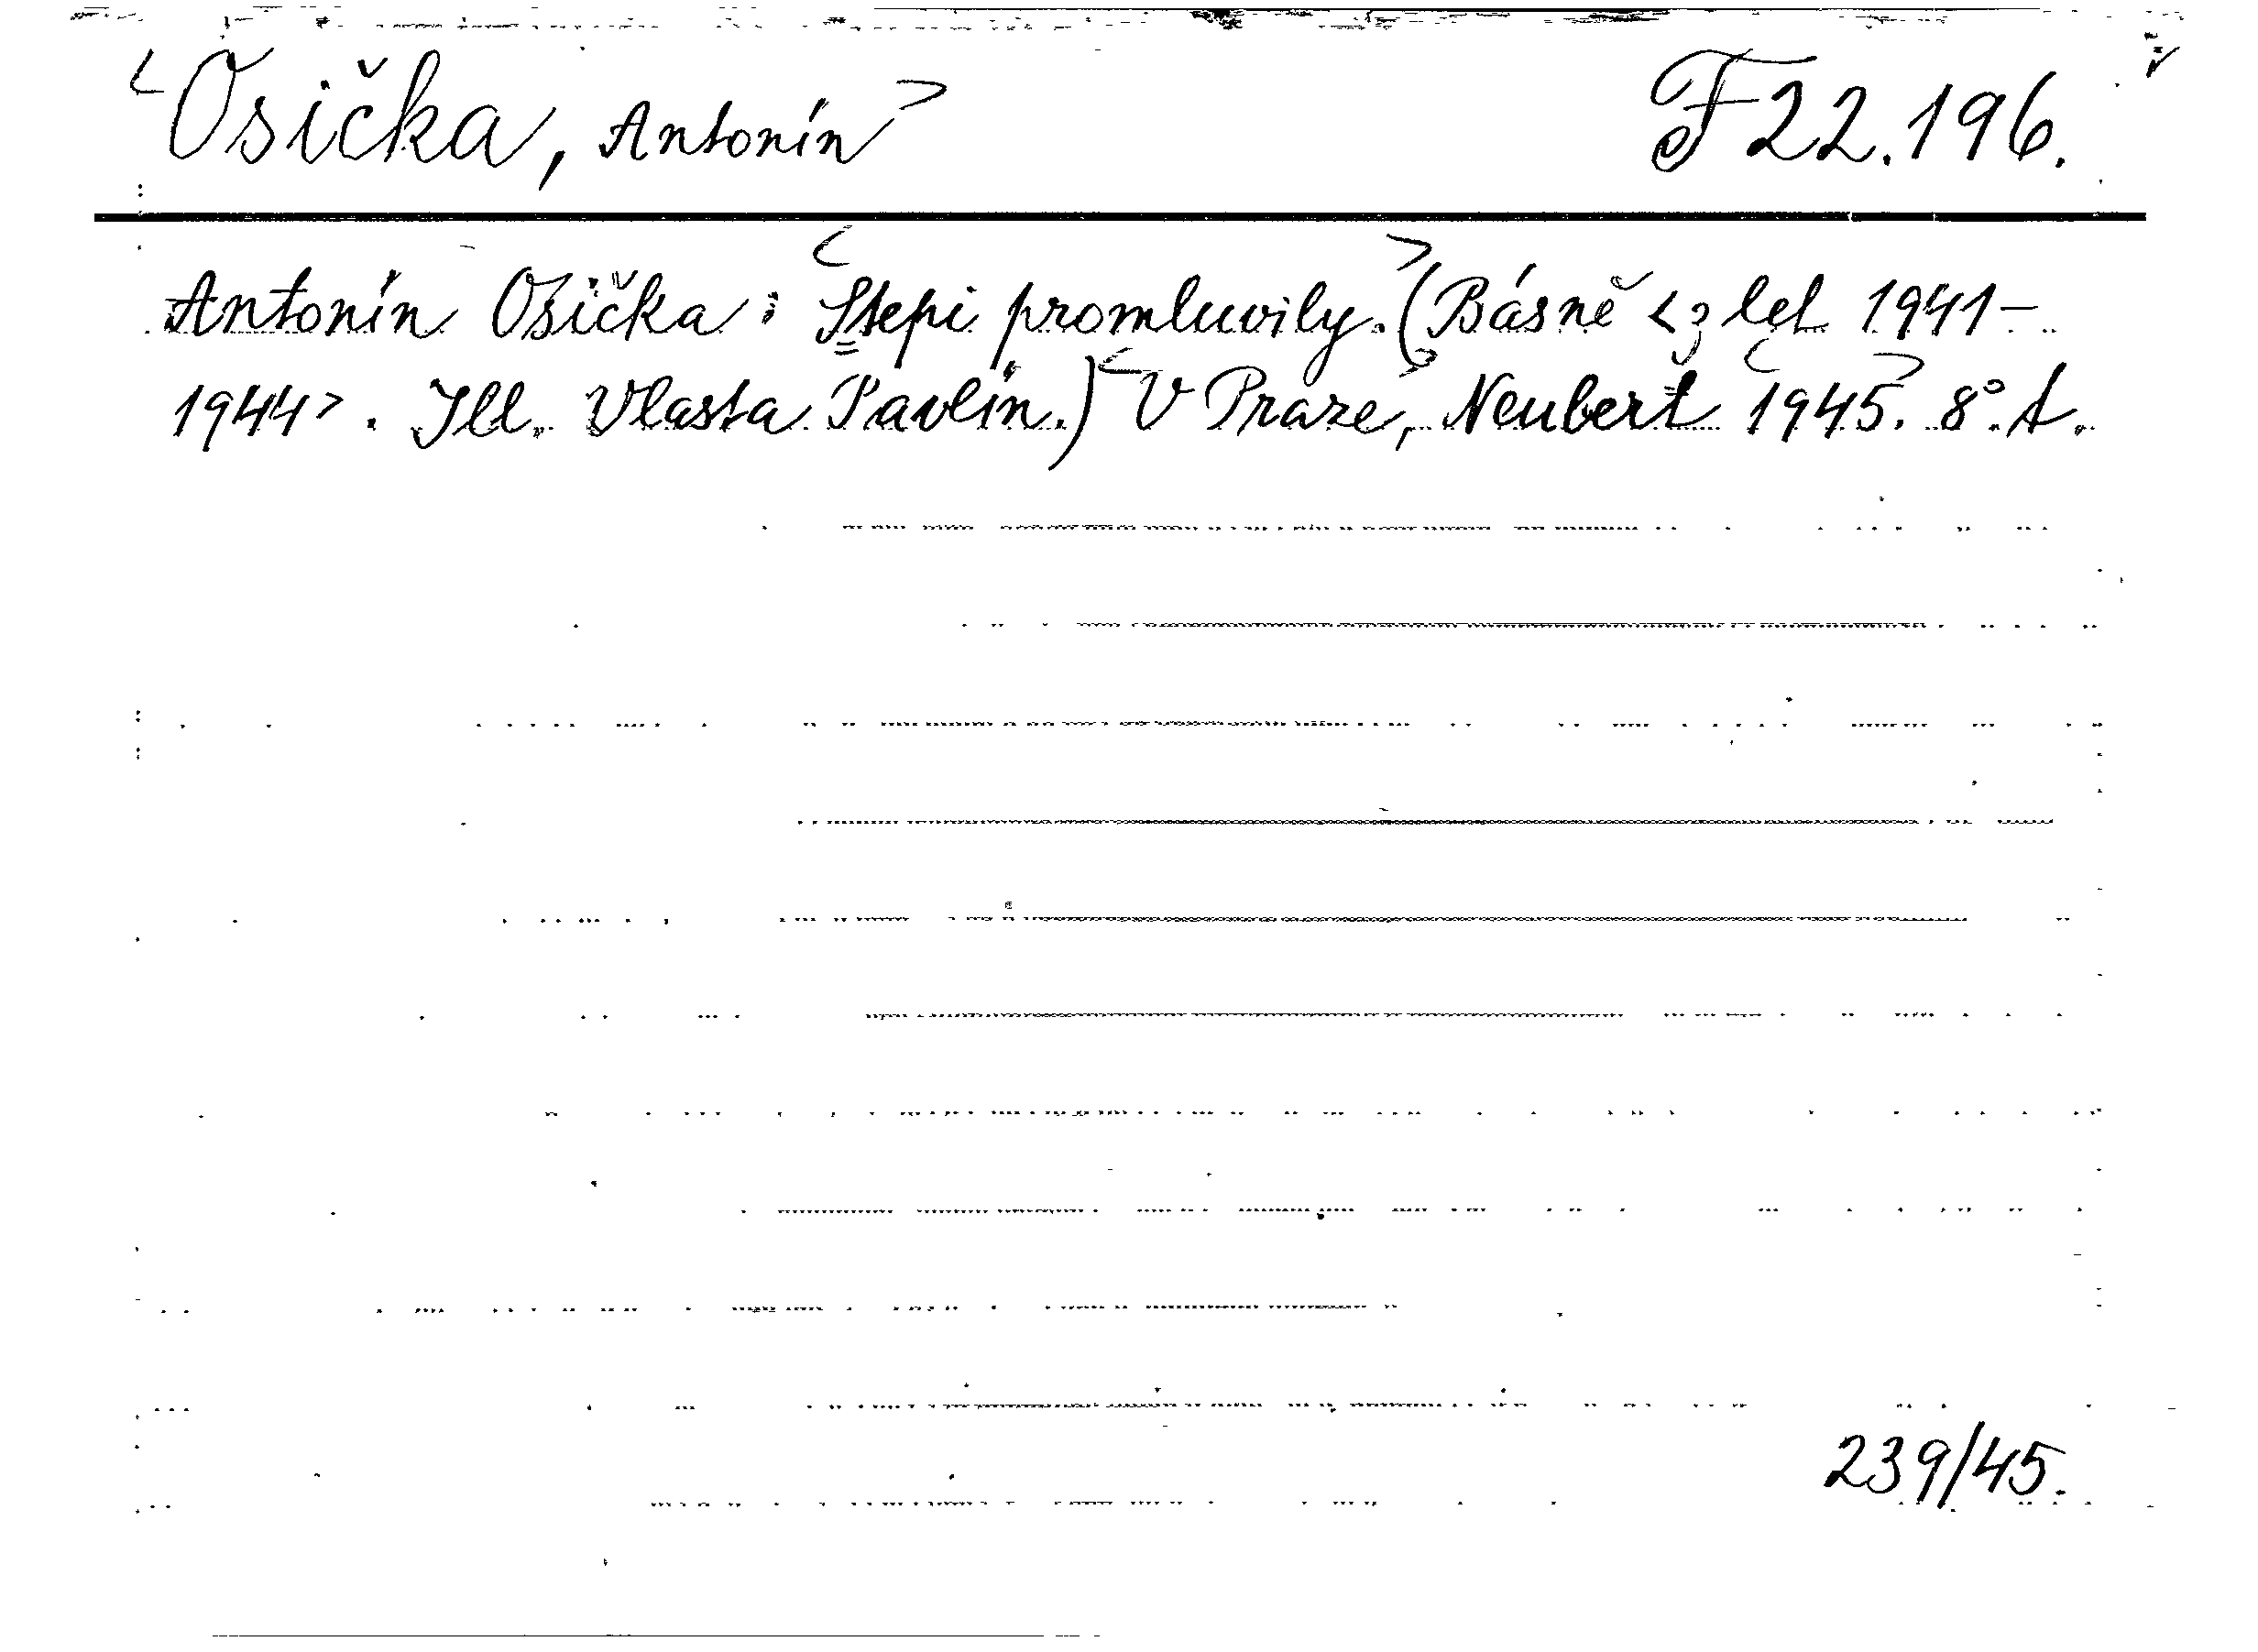 <Osička, Antonín> F 22.196.
Antonín Osička: <Stepi promluvily.> (Básně <z let 1941-
1944>. Ill. Vlasta Pavlín.) <V Praze,> Neubert <1945>. 8°. A.
239/45.